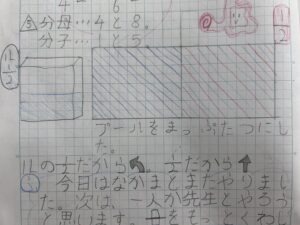 4 6
分母…4と8。
分子…1と5。
1/2
1L
1/2
プールをまっぷたつにし
た。
1Lの1/2だから 1/2だから
今日はなかまとまたやりまし
た。次は、一人か先生とやろう
と思います。
をもっとくわし